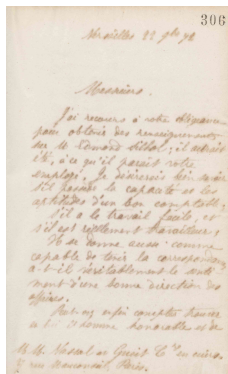 306
Bruxelles 22 9bre 92
Messieurs.
J'ai recours à votre obligeance
pour obtenir des renseignements
sur M. Edmond ; il aurait
été, à ce qu'il paraît votre
employé. Je désirerais bien savoir
s'il possède la capacité et les
aptitudes d'un bon comptable,
s'il a le travail facile, et
s'il est réellement travailleur,
Il se donne aussi comme
capable de tenir la correspondance
a-t-il véritablement le senti-
ment d'une bonne direction des
affaires.
Peut-on, enfin compter trouver
en lui un homme honorable et de
M.M. et Cie en
rue , Paris.